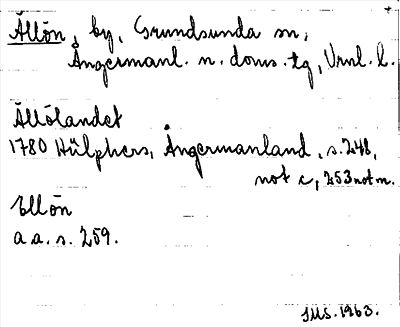 Ällön, by, Grundsunda sn,
Ångermanl. n. doms. tg, Vrnl. l.
Ällölandet
1780 Hülphers, Ångermanland, s. 248,
not c, 253 not m.
Ellön
a.a. s. 259.
JMS. 1963.